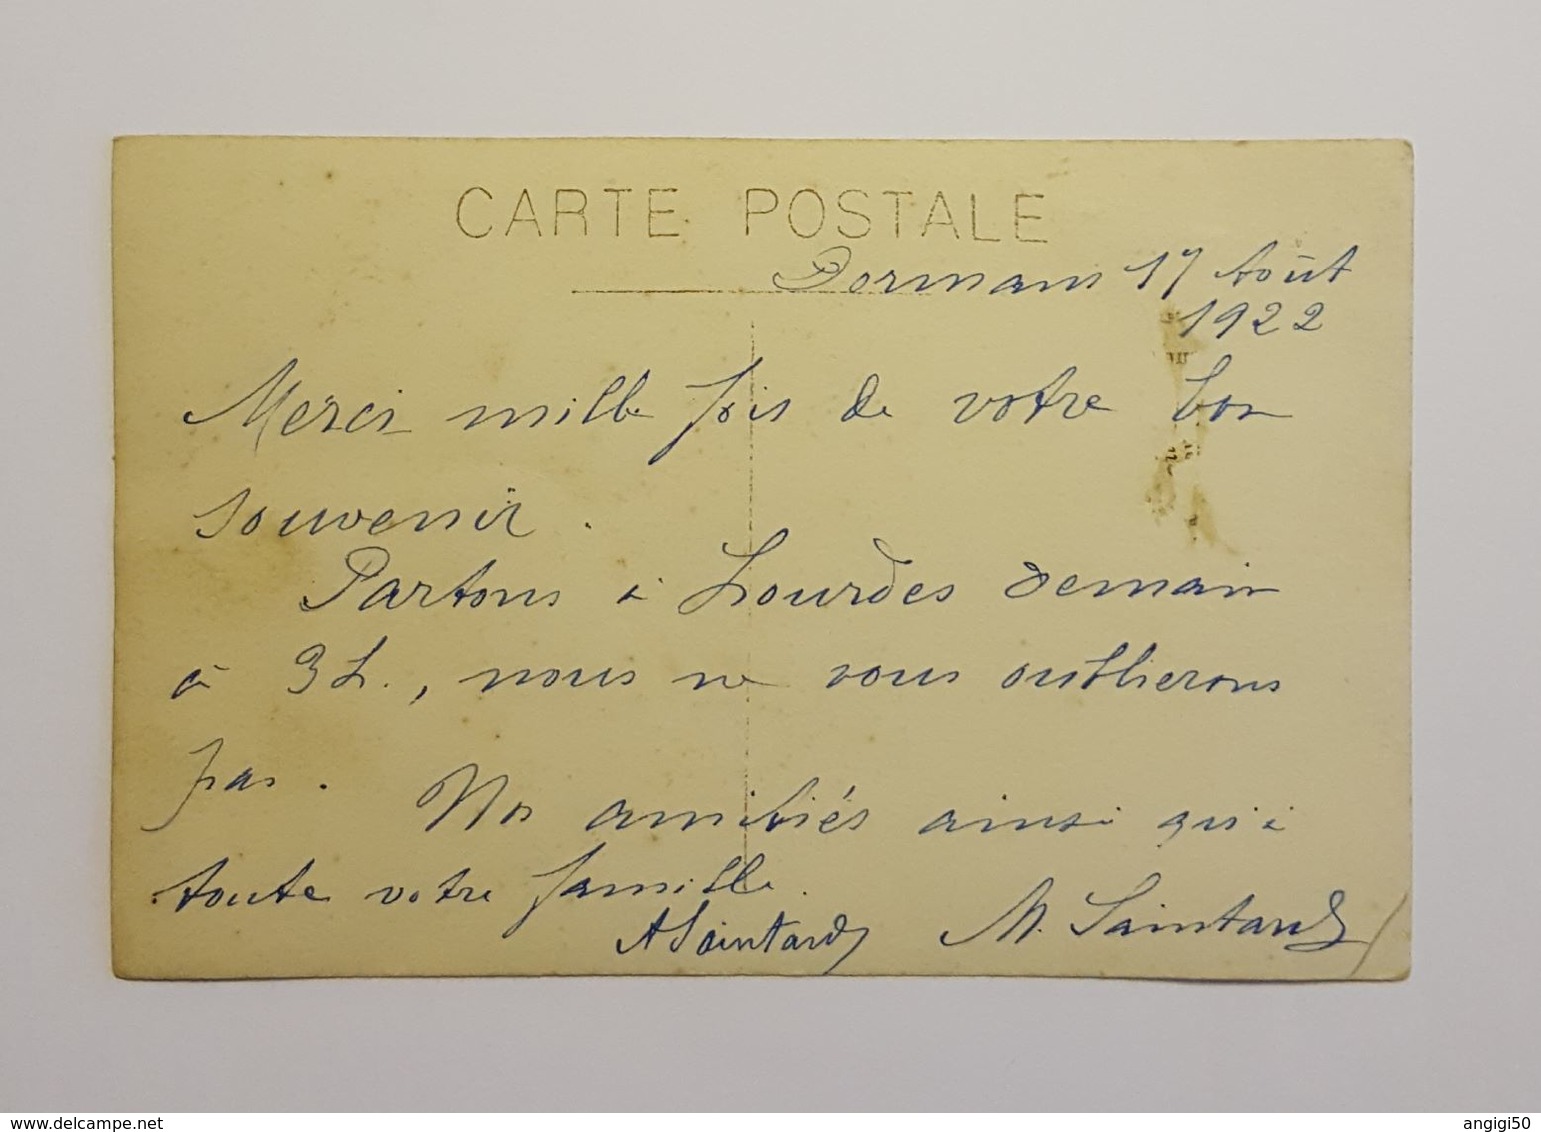 CARTE POSTALE
Dormans 17 Août
1922
Merci mille fois de votre bon
souvenir.
Partons à Lourdes demain
à 3 h., nous ne vous oublierons
pas. Nos amitiés ainsi qu'à
toute votre famille.
A Saintard M. Saintard
delcampe.net
angigi50